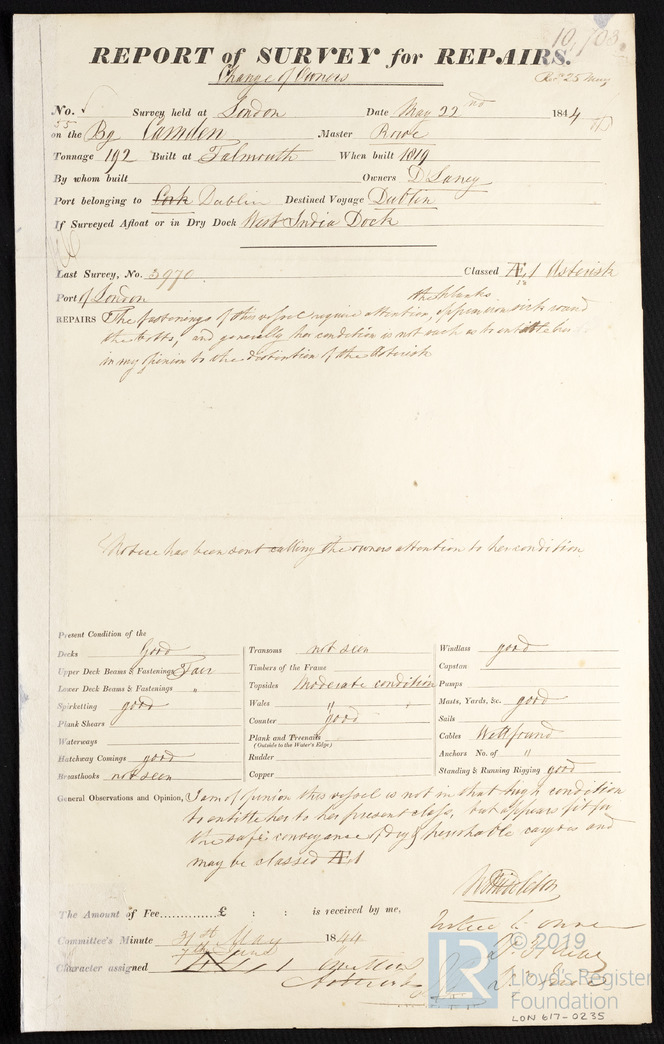 10,703
REPORT of SURVEY for REPAIRS.
Change of Owners
Recd 25 May
No. Survey held at London Date May 22nd 1844
55
on the Bg Camden Master Rowe
Tonnage 192 Built at Falmouth When built 1819
By whom built Owners D Laney
Port belonging to Cork Dublin Destined Voyage Dublin
If Surveyed Afloat or in Dry Dock West India Dock
Last Survey, No. 3970 Classed Æ 1 Asterisk
Port of London
the planks
REPAIRS The fastenings of this vessel require attention, round
the bolts, and generally her condition is not such as to entitle her
in my opinion to the distinction of the Asterisk
Notice has been sent calling the owners attention to her condition
Present Condition of the
Decks Good
Upper Deck Beams & Fastenings Fair
Lower Deck Beams & Fastenings "
Spirketting good
Plank Shears
Waterways
Hatchway Comings good
Breasthooks not seen
Transoms not seen
Timbers of the Frame
Topsides Moderate condition
Wales "
Counter good
Plank and Treenails
(Outside to the Water's Edge)
Rudder
Copper
Windlass good
Capston
Pumps
Masts, Yards, &c. good
Sails
Cables Well found
Anchors No. of "
Standing & Running Rigging good
General Observations and Opinion, I am of opinion this vessel is not in that high condition
to entitle her to her present class, but appears fit for
the safe conveyance of dry & perishable cargoes and
may be classed Æ1
W Middleton
The Amount of Fee..............£ : : is received by me,
Committee's Minute 31st May 1844
7th June
Character assigned 1
Asterisk
© 2019
LR
Lloyd's Register
Foundation
LON 617-0235